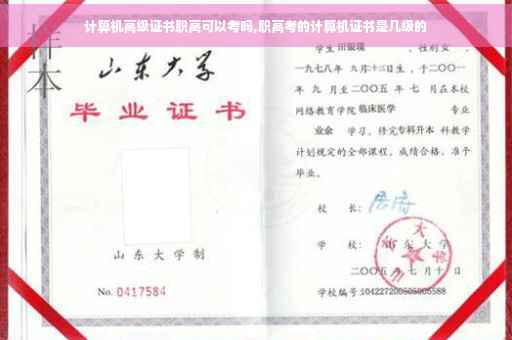 计算机高级证书职高可以考吗,职高考的计算机证书是几级的
样本
山东大学
毕业证书
山东大学制
No. 0417584
学生 田银瑞 ，性别 女 ，
一九七八年 九月十三日生，于二〇〇一
年 九 月至二〇〇五 年 七 月在本校
网络教育学院 临床医学 专业
业余 学习，修完 专科升本 科教学
计划规定的全部课程，成绩合格，准予
毕业。
校 长：
学 校： 山东大学
二〇〇五 年 七 月 十 日
学校编号:104227200505005588